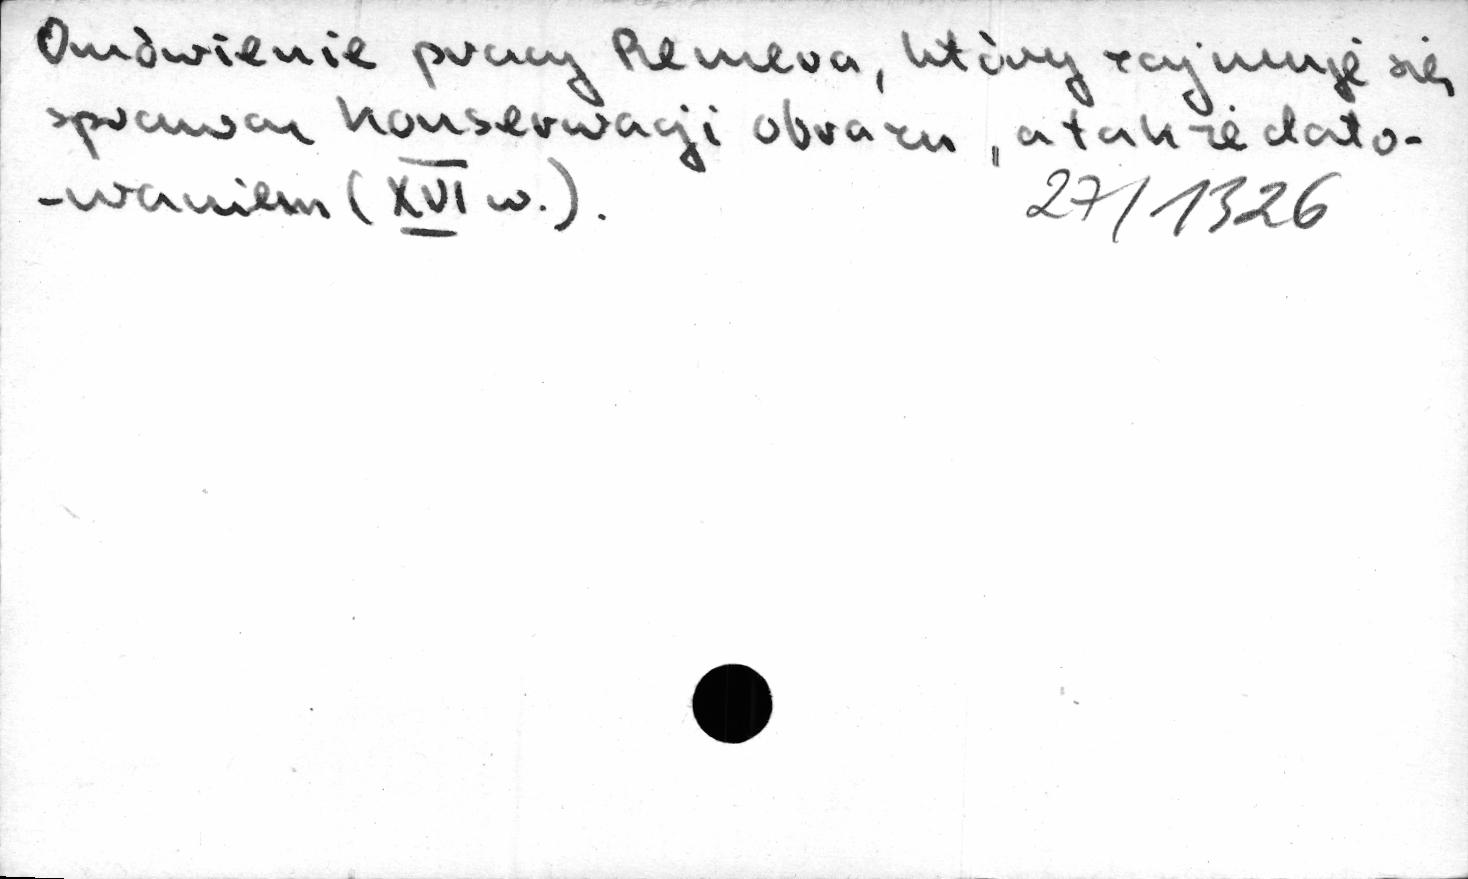 Omówienie pracy Remera, który zajmuje się
sprawą konserwacji obrazu, a także dato-
-waniem (XVI w.).
27/1326